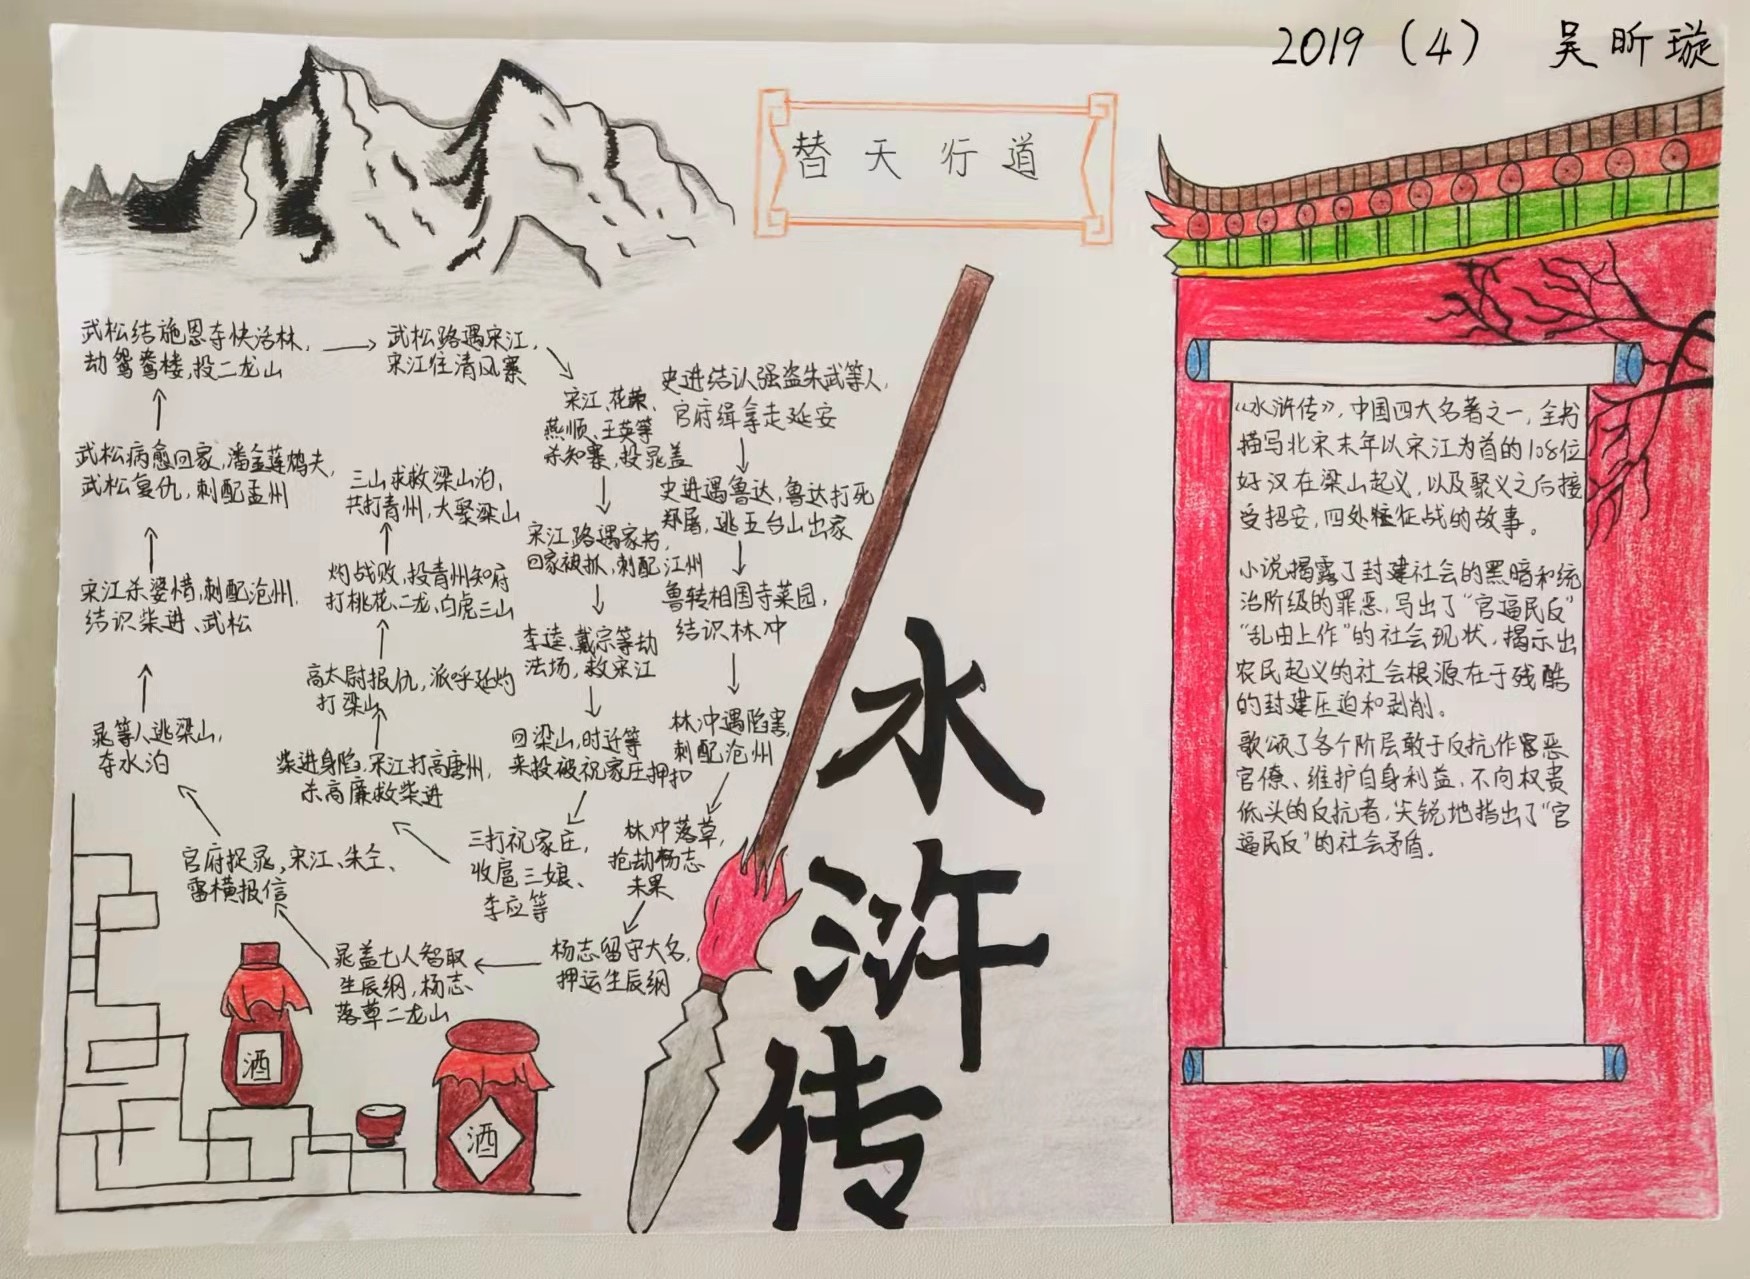 2019（4） 吴昕璇
替天行道
武松结施恩夺快活林，
劫鸳鸯楼，投二龙山
武松路遇宋江，
宋江往清风寨
宋江、花荣、
燕顺、王英等
杀知寨，投晁盖
史进结认强盗朱武等人，
官府缉拿走延安
武松病愈回家，潘金莲鸩夫，
武松复仇，刺配孟州
三山求救梁山泊，
共打青州，大聚梁山
史进遇鲁达，鲁达打死
郑屠，逃五台山出家
宋江路遇家书，
回家被抓，刺配江州
宋江杀婆惜，刺配沧州，
结识柴进、武松
灼战败，投青州知府
打桃花、二龙、白虎三山
鲁转相国寺菜园，
结识林冲
李逵、戴宗等劫
法场，救宋江
高太尉报仇，派呼延灼
打梁山
晁等人逃梁山，
夺水泊
柴进身陷，宋江打高唐州，
杀高廉救柴进
回梁山，时迁等
来投被祝家庄押扣
林冲遇陷害，
刺配沧州
官府捉晁，宋江、朱仝、
雷横报信
三打祝家庄，
收扈三娘、
李应等
林冲落草，
抢劫杨志
未果
晁盖七人智取
生辰纲，杨志
落草二龙山
杨志留守大名，
押运生辰纲
酒
酒
水
浒
传
《水浒传》，中国四大名著之一，全书
描写北宋末年以宋江为首的108位
好汉在梁山起义，以及聚义之后接
受招安，四处征战的故事。
小说揭露了封建社会的黑暗和统
治阶级的罪恶，写出了“官逼民反”
“乱由上作”的社会现状，揭示出
农民起义的社会根源在于残酷
的封建压迫和剥削。
歌颂了各个阶层敢于反抗作恶
官僚、维护自身利益，不向权贵
低头的反抗者，尖锐地指出了“官
逼民反”的社会矛盾。